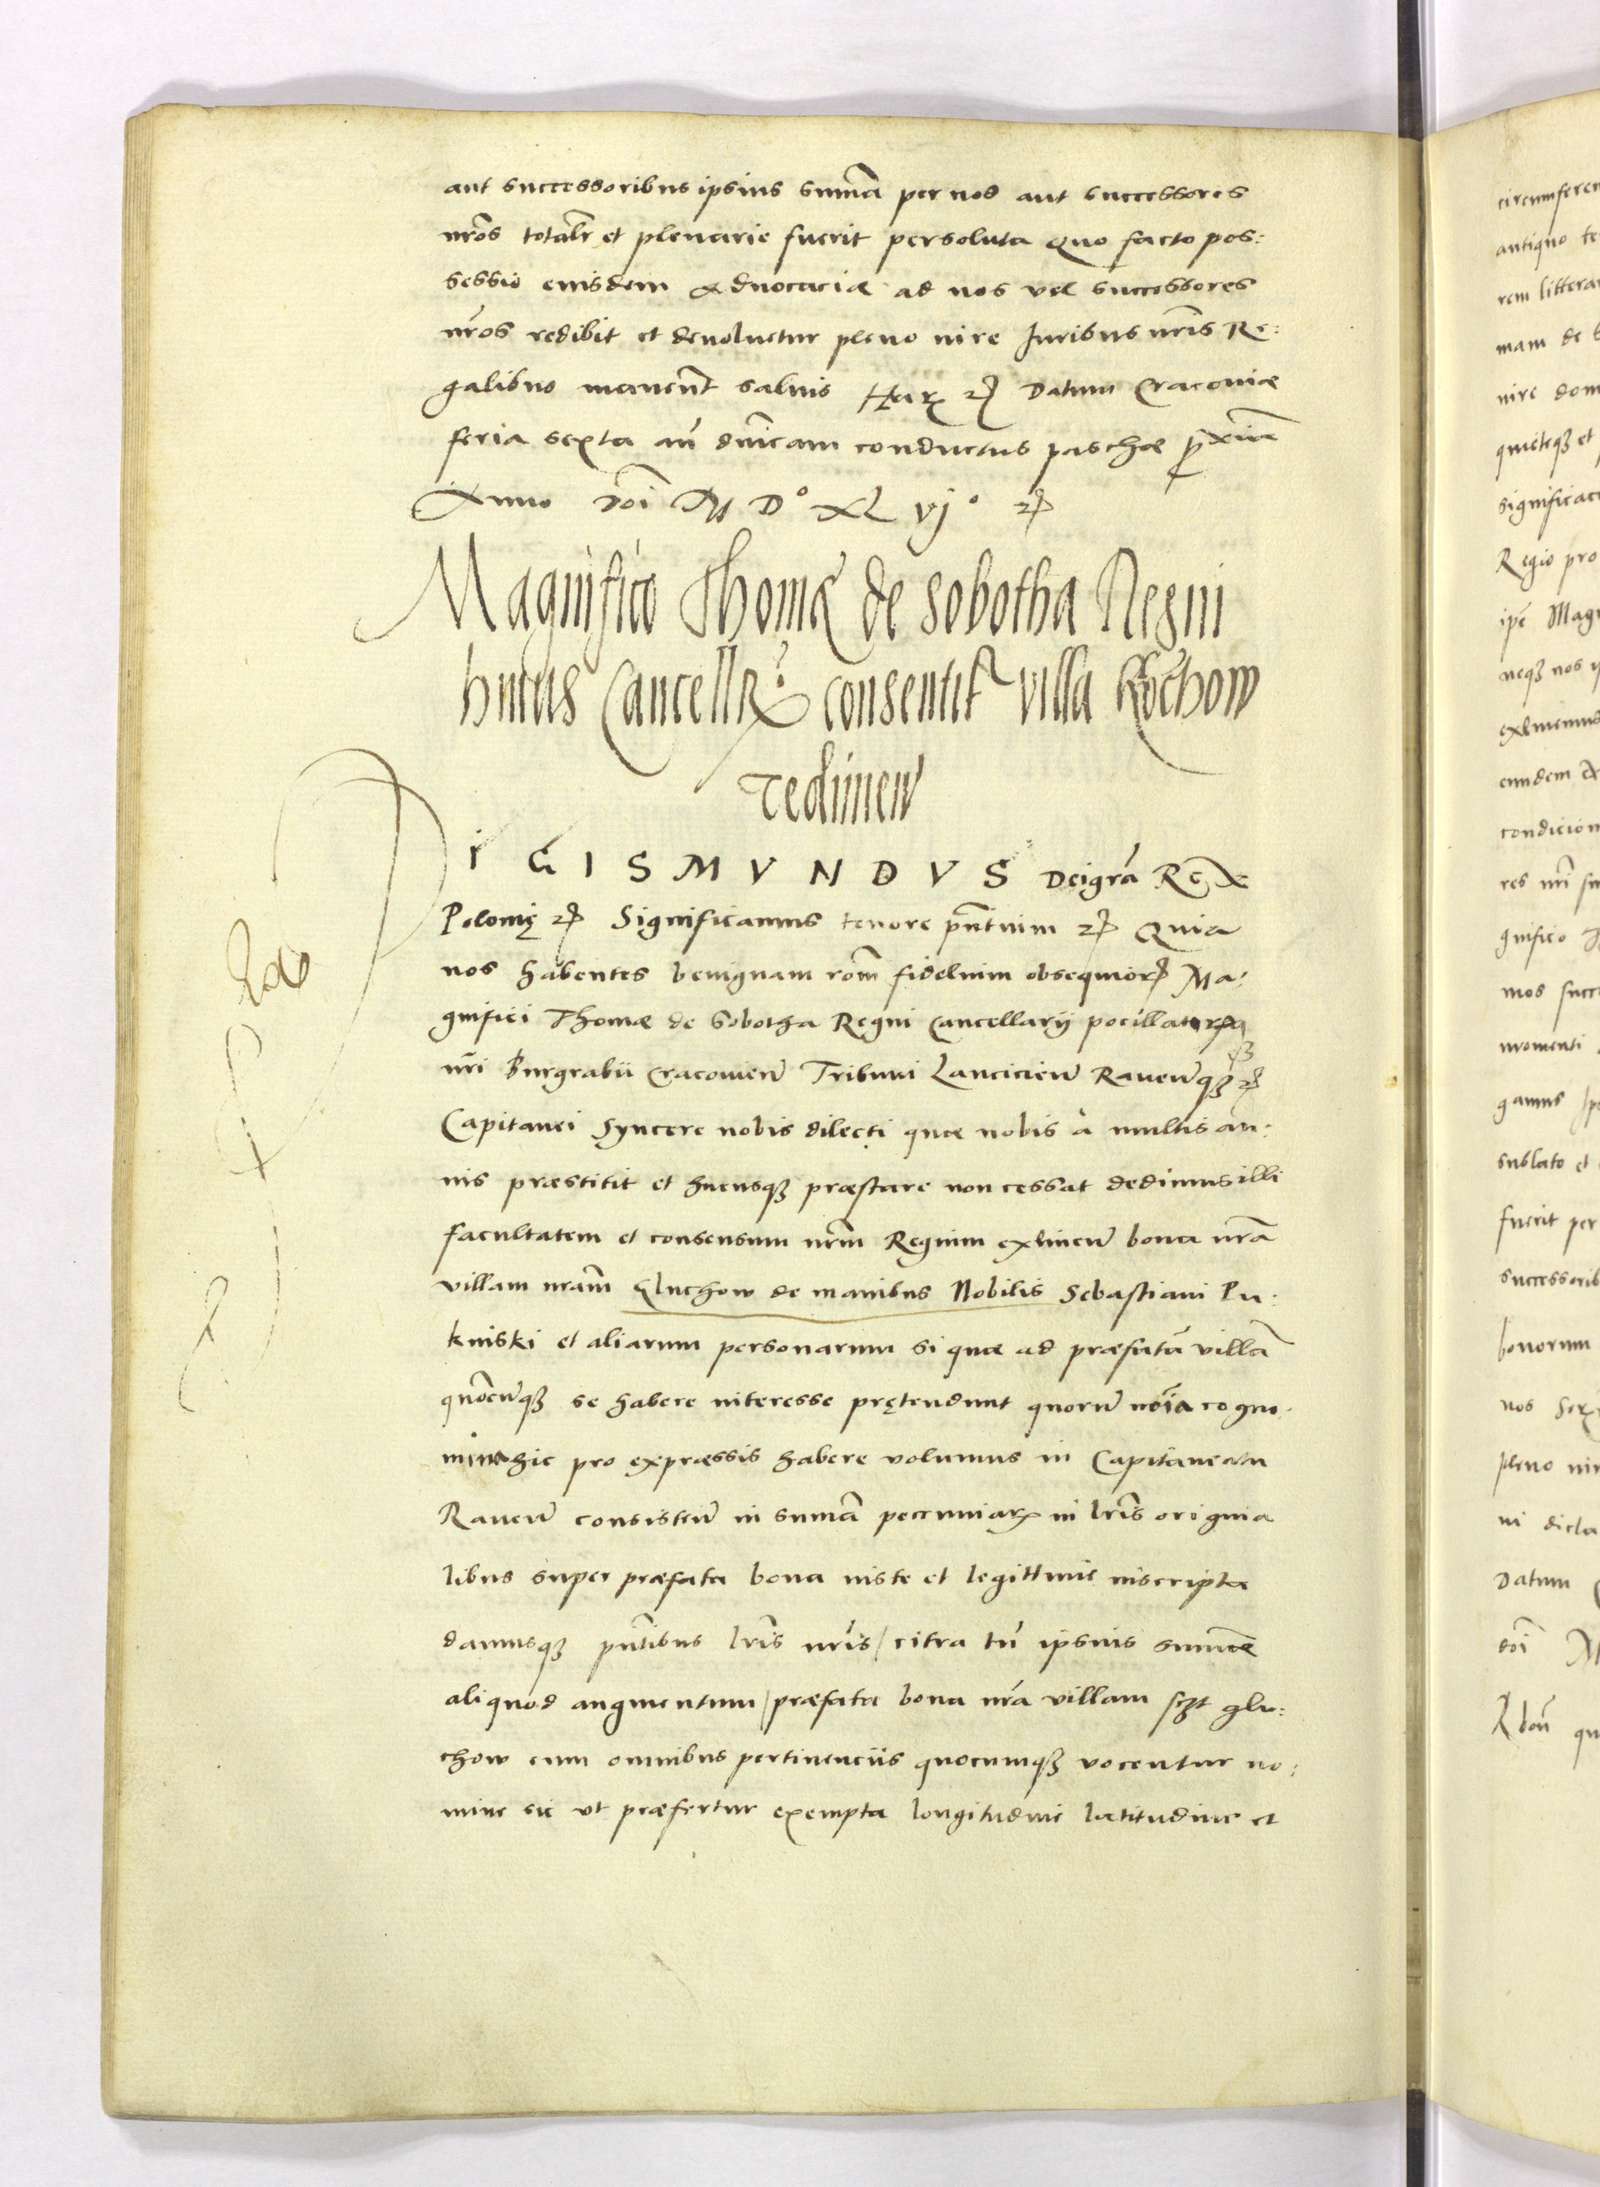 aut successoribus ipsius summã per nos aut successores
nr̃os totalr̃ et plenarie fuerit persoluta Quo facto pos:
sessio eiusdem aduocaciæ ad nos vel successores
nr̃os redibit et deuoluetur pleno iure Iuribus nr̃is Re:
galibus manent̃ saluis Harꝫ ꝛꝭ Datum Cracoviæ
feria sexta an̄ dnĩcam conductus paschæ pͬxiã
Anno Doĩ M D° XL vj° ꝛꝭ
Magnifico Thomę de Sobotha Regni
huius Cancellꝝ° consentitͬ villã
redimen̄
IGISMVNDVS Dei grã Rex
Polonię ꝛꝭ Significamus tenore pn̄tium ꝛꝭ Quia
nos habentes benignam rõm fidelium obsequiorꝝ Ma:
gnifici Thomæ de Sobotha Regni Cancellarij pocillatorꝭ
nr̃i Burgrabii Cracovien̄ Tribuni Lancicien̄ Raven̄qꝫ ꝛꝭ
Capitanei syncere nobis dilecti quæ nobis à multis an:
nis præstitit et hucusqꝫ præstare non cessat dedimus illi
facultatem et consensum nr̃m Regium eximen̄ bona nrã
villam nrãm Gluchow de manibus Nobilis Sebastiani Lu:
kniski et aliarum personarum si quæ ad præfatã villã
quõcun̄qꝫ se habere interesse prętendunt quorũ nõia cogno
mina hic pro expræssis habere volumus in Capitaneatu
Raven̄ consisten̄ in summã pecuniarꝝ in lrĩs origina
libus super præfata bona iuste et legittime inscripta
damusqꝫ pn̄tibus lrĩs nr̃is / citra tn̄ ipsius summæ
aliquod augmentum / præfata bona nrã villam sꝫt Glu:
chow cum omnibus pertinenciis quocumqꝫ vocentur no:
mine sic vt præfertur exempta longitudine latitudine et
circumferen
antiquo te
rem littera
mam de
iure dom
quieteqꝫ et
significa
Regio pro
ipẽ Mag
neqꝫ nos
eximemus
eundem
condicion
res nr̃i su
gnifico
mos succ
momenti
gamus ip
sublato et
fuerit per
successorib
bonorum
nos
pleno iu
ni dicta
Datum
doĩ M